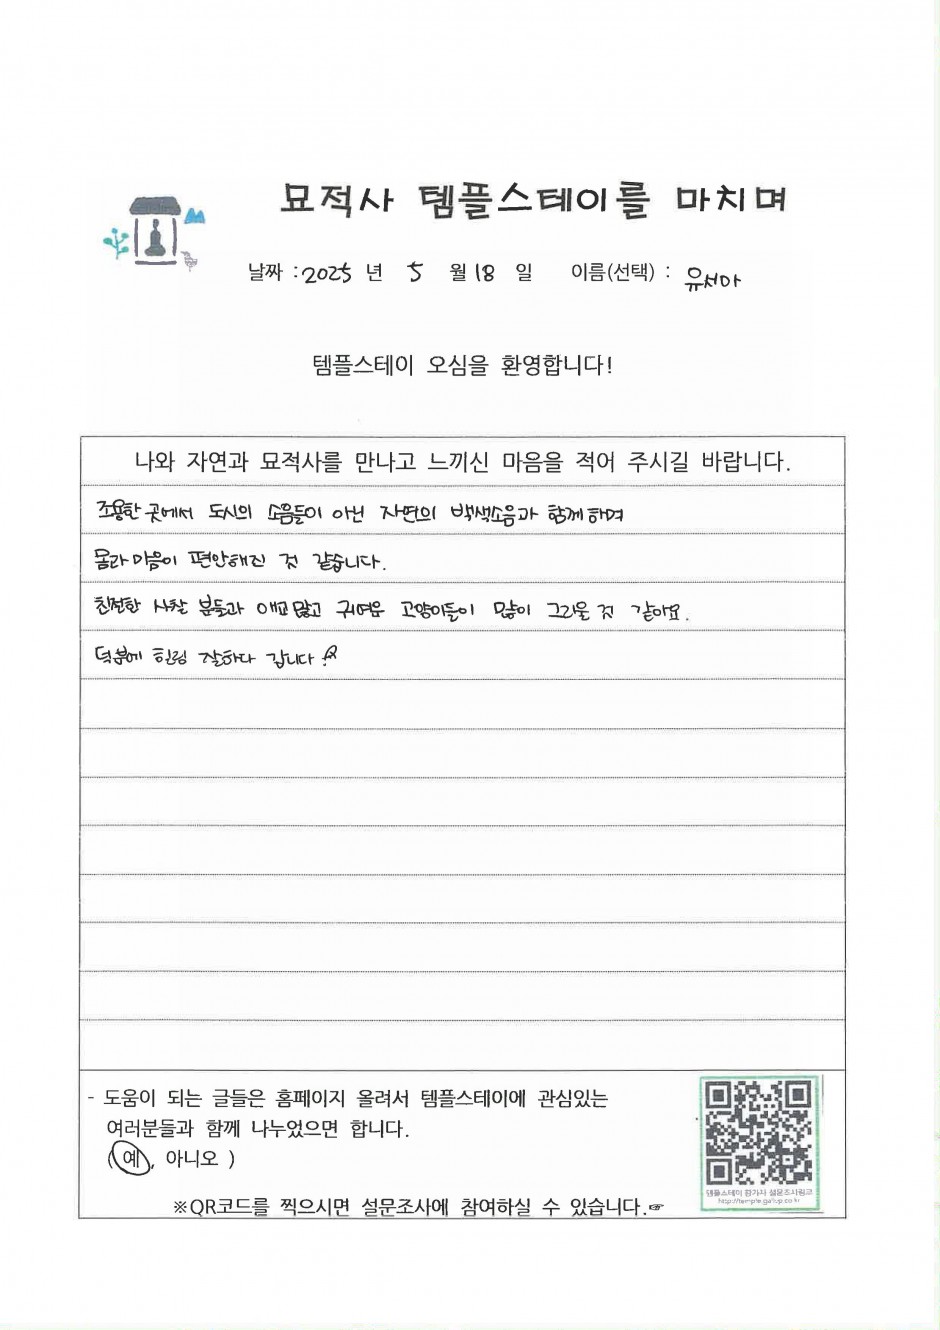 묘적사 템플스테이를 마치며
날짜 : 2025 년 5 월 18 일 이름(선택) :
템플스테이 오심을 환영합니다!
나와 자연과 묘적사를 만나고 느끼신 마음을 적어 주시길 바랍니다.
조용한 곳에서 도시의 소음들이 아닌 자연의 백색소음과 함께하며
몸과 마음이 편안해진 것 같습니다.
친절한 사찰 분들과 애교많고 귀여운 고양이들이 많이 그리울 것 같아요.
덕분에 힐링 잘하다 갑니다!
- 도움이 되는 글들은 홈페이지 올려서 템플스테이에 관심있는
여러분들과 함께 나누었으면 합니다.
(예, 아니오 )
템플스테이 참가자 설문조사링크
http://temple.gallup.co.kr
※QR코드를 찍으시면 설문조사에 참여하실 수 있습니다.☞